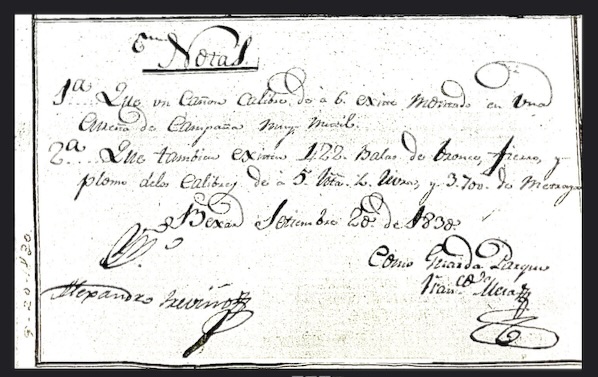 Notas.
1ª Que un Cañon calibre de á 6. existe montado en una
Cureña de Campaña muy movil.
2ª Que tambien existen 422 Balas de bronce, fierro, y
plomo de los Calibres de á 5 y 3.700. de
Bexar Setiembre 20 de 1830.
Como Guarda Parque
Alexandro Treviño